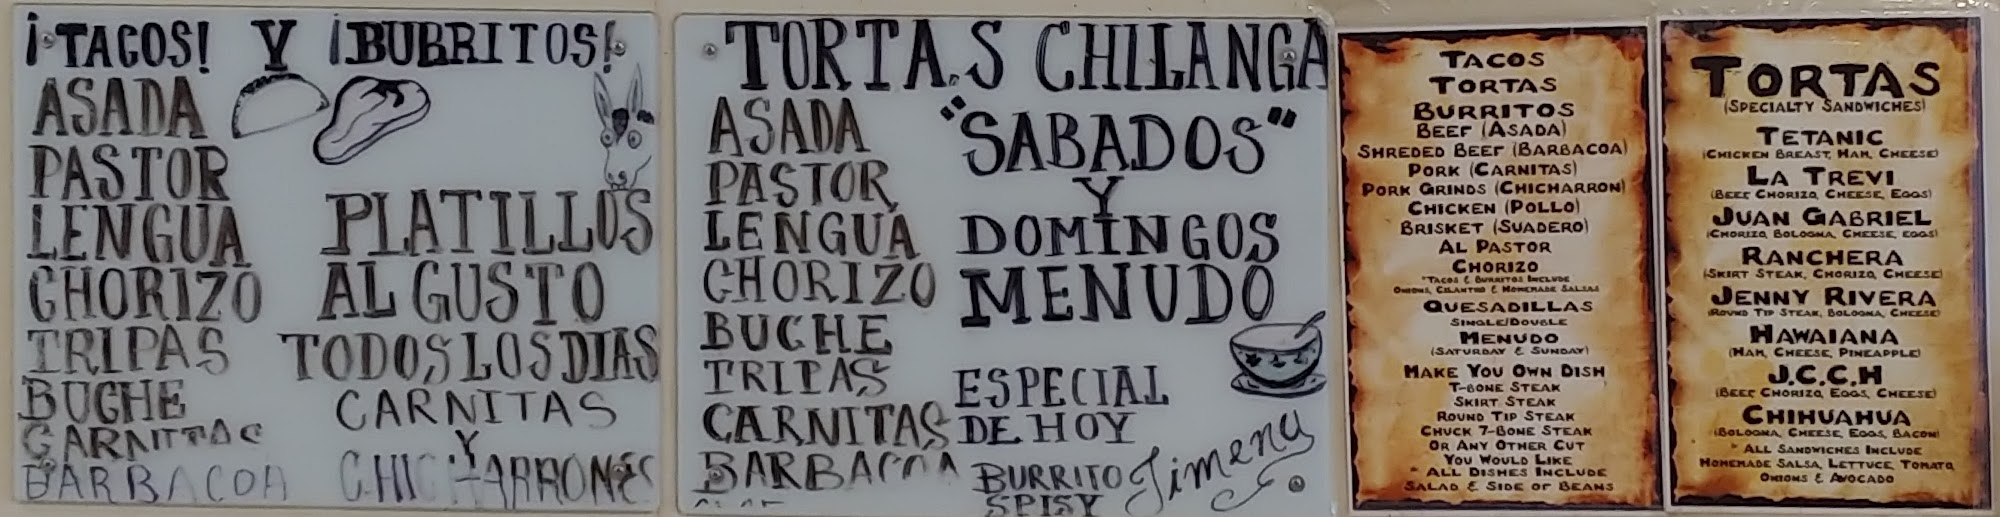 ¡TACOS! Y ¡BURRITOS!
ASADA
PASTOR
LENGUA
CHORIZO
TRIPAS
BUCHE
CARNITAS
BARBACOA
PLATILLOS
AL GUSTO
TODOS LOS DIAS
CARNITAS
Y
CHICHARRONES
TORTA.S CHILANGA
ASADA
PASTOR
LENGUA
CHORIZO
BUCHE
TRIPAS
CARNITAS
BARBACOA
"SABADOS"
Y
DOMINGOS
MENUDO
ESPECIAL
DE HOY
BURRITO
SPISY
Jimeny
TACOS
TORTAS
BURRITOS
BEEF (ASADA)
SHREDED BEEF (BARBACOA)
PORK (CARNITAS)
PORK GRINDS (CHICHARRON)
CHICKEN (POLLO)
BRISKET (SUADERO)
AL PASTOR
CHORIZO
*TACOS & BURRITOS INCLUDE
ONIONS, CILANTRO & HOMEMADE SALSAS
QUESADILLAS
SINGLE/DOUBLE
MENUDO
(SATURDAY & SUNDAY)
MAKE YOU OWN DISH
T-BONE STEAK
SKIRT STEAK
ROUND TIP STEAK
CHUCK 7-BONE STEAK
OR ANY OTHER CUT
YOU WOULD LIKE
* ALL DISHES INCLUDE
SALAD & SIDE OF BEANS
TORTAS
(SPECIALTY SANDWICHES)
TETANIC
(CHICKEN BREAST, HAM, CHEESE)
LA TREVI
(BEEF CHORIZO, CHEESE, EGGS)
JUAN GABRIEL
(CHORIZO, BOLOGNA, CHEESE, EGGS)
RANCHERA
(SKIRT STEAK, CHORIZO, CHEESE)
JENNY RIVERA
(ROUND TIP STEAK, BOLOGNA, CHEESE)
HAWAIANA
(HAM, CHEESE, PINEAPPLE)
J.C.C.H
(BEEF CHORIZO, EGGS, CHEESE)
CHIHUAHUA
(BOLOGNA, CHEESE, EGGS, BACON)
* ALL SANDWICHES INCLUDE
HOMEMADE SALSA, LETTUCE, TOMATO,
ONIONS & AVOCADO